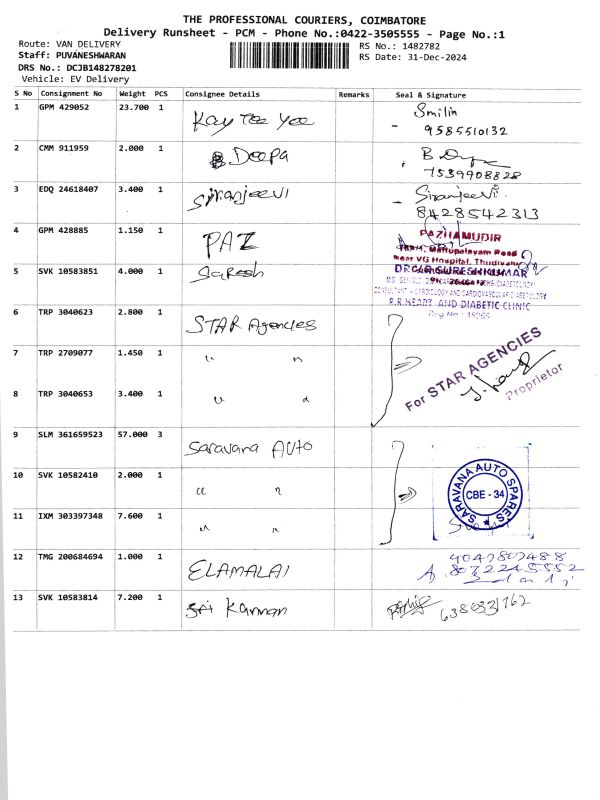 THE PROFESSIONAL COURIERS, COIMBATORE
Delivery Runsheet - PCM - Phone No.:0422-3505555 - Page No.:1
Route: VAN DELIVERY
RS No.: 1482782
Staff: PUVANESHWARAN
RS Date: 31-Dec-2024
DRS No.: DCJB148278201
Vehicle: EV Delivery
S No Consignment No Weight PCS Consignee Details Remarks Seal & Signature
1 GPM 429052 23.700 1 Kay Tee Yee Smilin
9585510132
2 CMM 911959 2.000 1 Deepa
7539908828
3 EDQ 24618407 3.400 1 Siranjeevi Siranjeevi.
8428542313
4 GPM 428885 1.150 1 PAZ PAZHAMUDIR
Near VG Hospital,
5 SVK 10583851 4.000 1 SuResh DR SURESHKUMAR
CONSULTANT - CARDIOLOGY AND CARDIOVASCULAR DIABETOLOGY
R.R.HEART AND DIABETIC CLINIC
6 TRP 3040623 2.800 1 STAR Agencies
7 TRP 2709077 1.450 1 " "
For STAR AGENCIES
Proprietor
8 TRP 3040653 3.400 1 " "
9 SLM 361659523 57.000 3 Saravana AUTO
10 SVK 10582410 2.000 1 " "
SARAVANA AUTO SPARES
CBE - 34
11 IXM 303397348 7.600 1 " "
12 TMG 200684694 1.000 1 ELAMALAI
13 SVK 10583814 7.200 1 Sri Kannan 6380331762